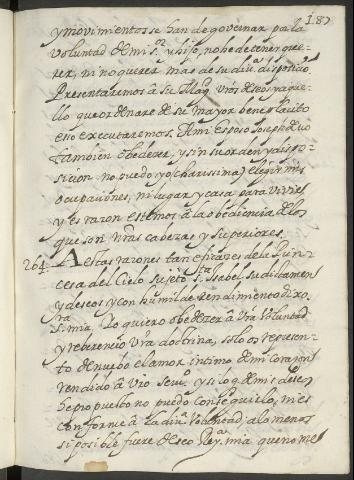 187
y movimientos se han de governar por la
voluntad de mi Sr. y hijo, no he de tener que-
rer, ni no querer mas de su diva. disposicio.
Presentaremos a su Magd. vros deseos y aque-
llo que ordenare de su mayor beneplacito
esso executaremos. A mi Esposo Joseph devo
tambien obedecer, y sin su orden y dispo-
sicion no puedo yo (charissima) elegir mis
ocupaciones, ni lugar, y casa para vivir
y es razon estemos a la obediencia de los
que son nras cabezas y superiores.
264. A estas razones tan eficazes de la Prin-
cesa del Cielo sujeto Sta. Isabel su dictamen
y deseos y con humilde rendimiento dixo
Sra. mia. Yo quiero obedezer a vra voluntad
y reverencio vra doctrina, solo os represen-
to de nuevo el amor intimo de mi corazon
rendido a vro servo. y si lo q. de mis deseos
he propuesto no puedo conseguirlo, ni es
conforme a la diva. voluntad a lo menos
si posible fuere deseo Reyna. mia que no me